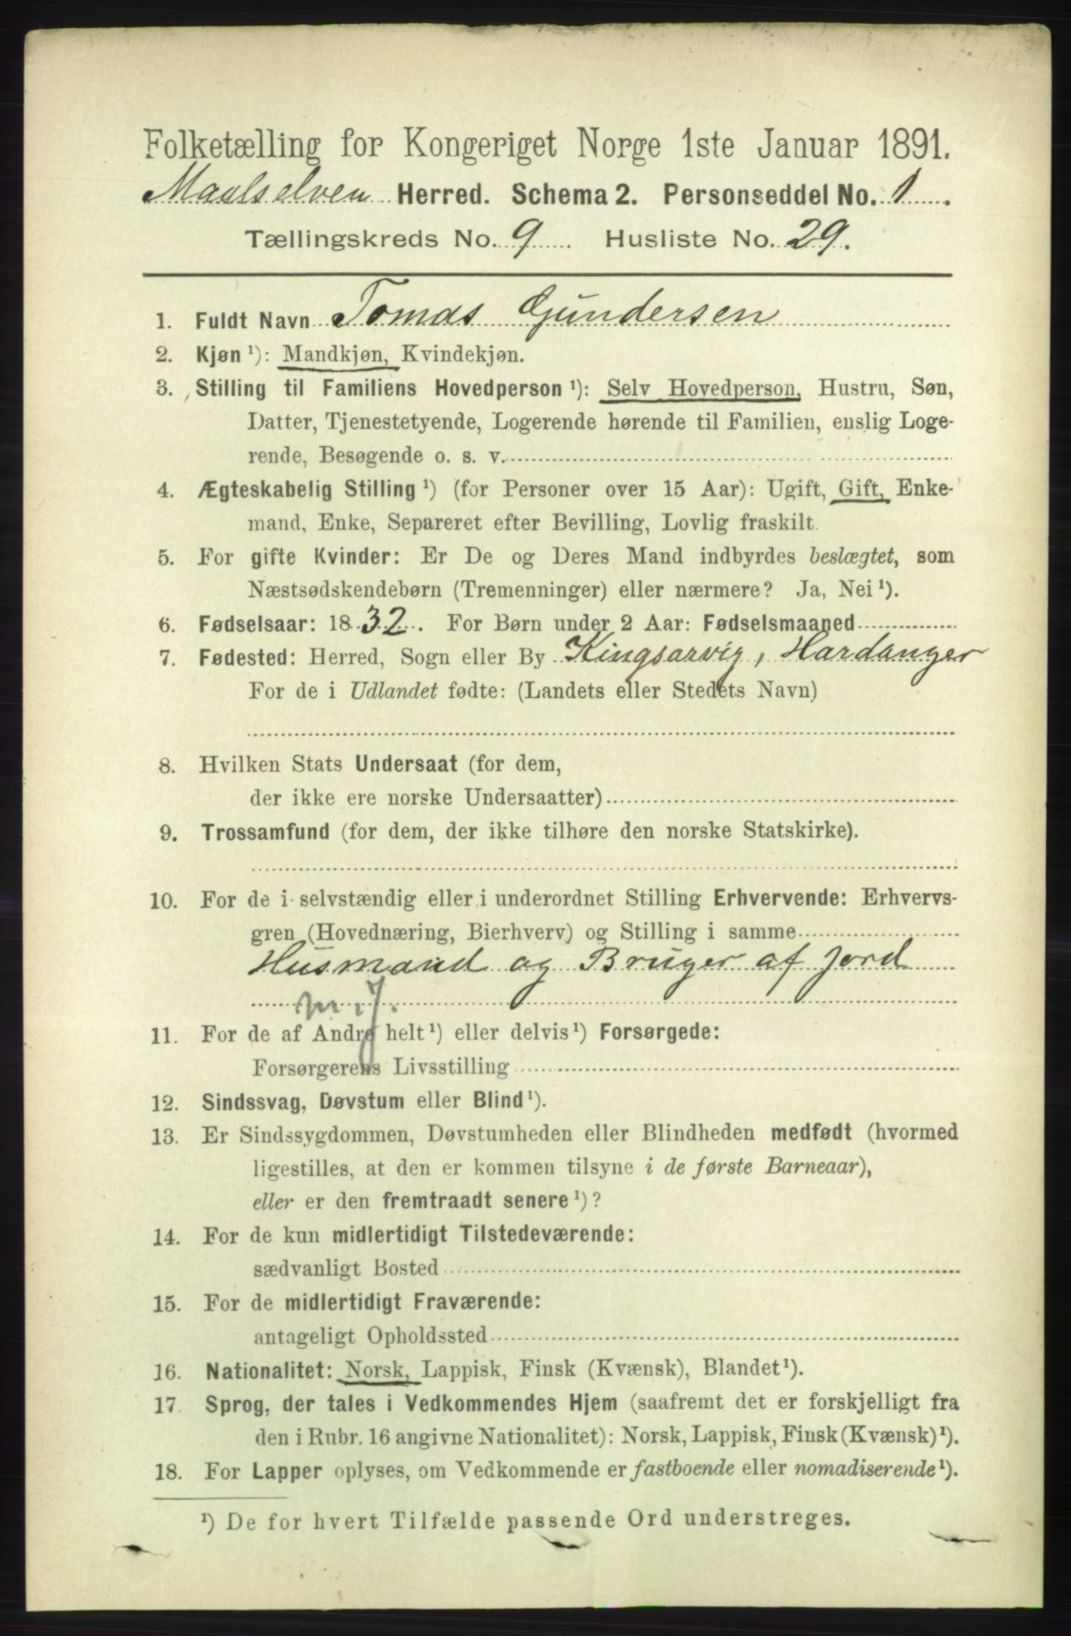 Folketælling for Kongeriget Norge 1ste Januar 1891.
Maalselven Herred. Schema 2. Personseddel No. 1.
Tællingskreds No. 9. Husliste No. 29.
1. Fuldt Navn Tomas Gundersen
2. Kjøn ¹): Mandkjøn, Kvindekjøn.
3. Stilling til Familiens Hovedperson ¹): Selv Hovedperson, Hustru, Søn,
Datter, Tjenestetyende, Logerende hørende til Familien, enslig Loge-
rende, Besøgende o. s. v.
4. Ægteskabelig Stilling ¹) (for Personer over 15 Aar): Ugift, Gift, Enke-
mand, Enke, Separeret efter Bevilling, Lovlig fraskilt
5. For gifte Kvinder: Er De og Deres Mand indbyrdes beslægtet, som
Næstsødskendebørn (Tremenninger) eller nærmere? Ja, Nei ¹).
6. Fødselsaar: 1832. For Børn under 2 Aar: Fødselsmaaned
7. Fødested: Herred, Sogn eller By Kingsarvig, Hardanger
For de i Udlandet fødte: (Landets eller Stedets Navn)
8. Hvilken Stats Undersaat (for dem,
der ikke ere norske Undersaatter)
9. Trossamfund (for dem, der ikke tilhøre den norske Statskirke).
10. For de i selvstændig eller i underordnet Stilling Erhvervende: Erhvervs-
gren (Hovednæring, Bierhverv) og Stilling i samme
Husmand og Bruger af Jord
m. J.
11. For de af Andre helt ¹) eller delvis ¹) Forsørgede:
Forsørgerens Livsstilling
12. Sindssvag, Døvstum eller Blind ¹).
13. Er Sindssygdommen, Døvstumheden eller Blindheden medfødt (hvormed
ligestilles, at den er kommen tilsyne i de første Barneaar),
eller er den fremtraadt senere ¹)?
14. For de kun midlertidigt Tilstedeværende:
sædvanligt Bosted
15. For de midlertidigt Fraværende:
antageligt Opholdssted
16. Nationalitet: Norsk, Lappisk, Finsk (Kvænsk), Blandet ¹).
17. Sprog, der tales i Vedkommendes Hjem (saafremt det er forskjelligt fra
den i Rubr. 16 angivne Nationalitet): Norsk, Lappisk, Finsk (Kvænsk) ¹).
18. For Lapper oplyses, om Vedkommende er fastboende eller nomadiserende ¹).
¹) De for hvert Tilfælde passende Ord understreges.